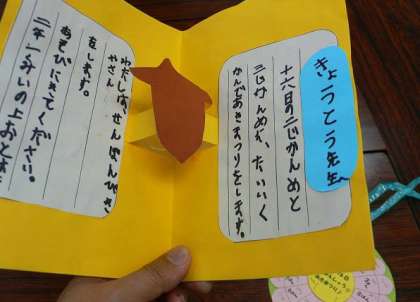 きょうとう先生へ
十六日の二じかんめと
三じかんめに、たいいく
かんであきまつりをします。
わたしは、せんぼんびき
やさん
をします。
あそびにきてください。
二年一くみいの上